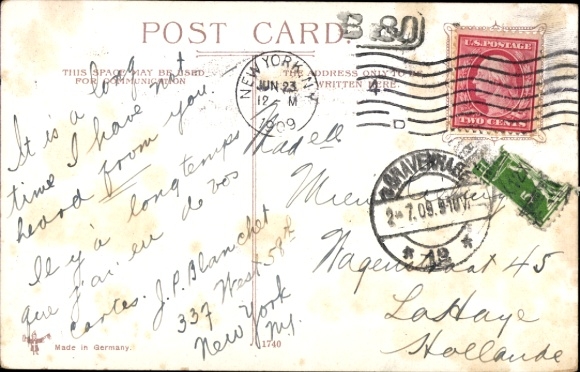 POST CARD.
B 80
THIS SPACE MAY BE USED
FOR COMMUNICATION
THE ADDRESS ONLY TO BE
WRITTEN HERE.
NEW YORK, N.Y.
JUN 23
12 M
1909
D
U.S. POSTAGE
TWO CENTS
'S GRAVENHAGE
2 7.09. 9-10V.
* 12 *
It is a long
time I have not
heard from you
Il y'a longtemps
que j'ai eu de vos
cartes. J.P. Blanchet
337 West 58th
New York
Made in Germany.
1740
45
La Haye
Hollande